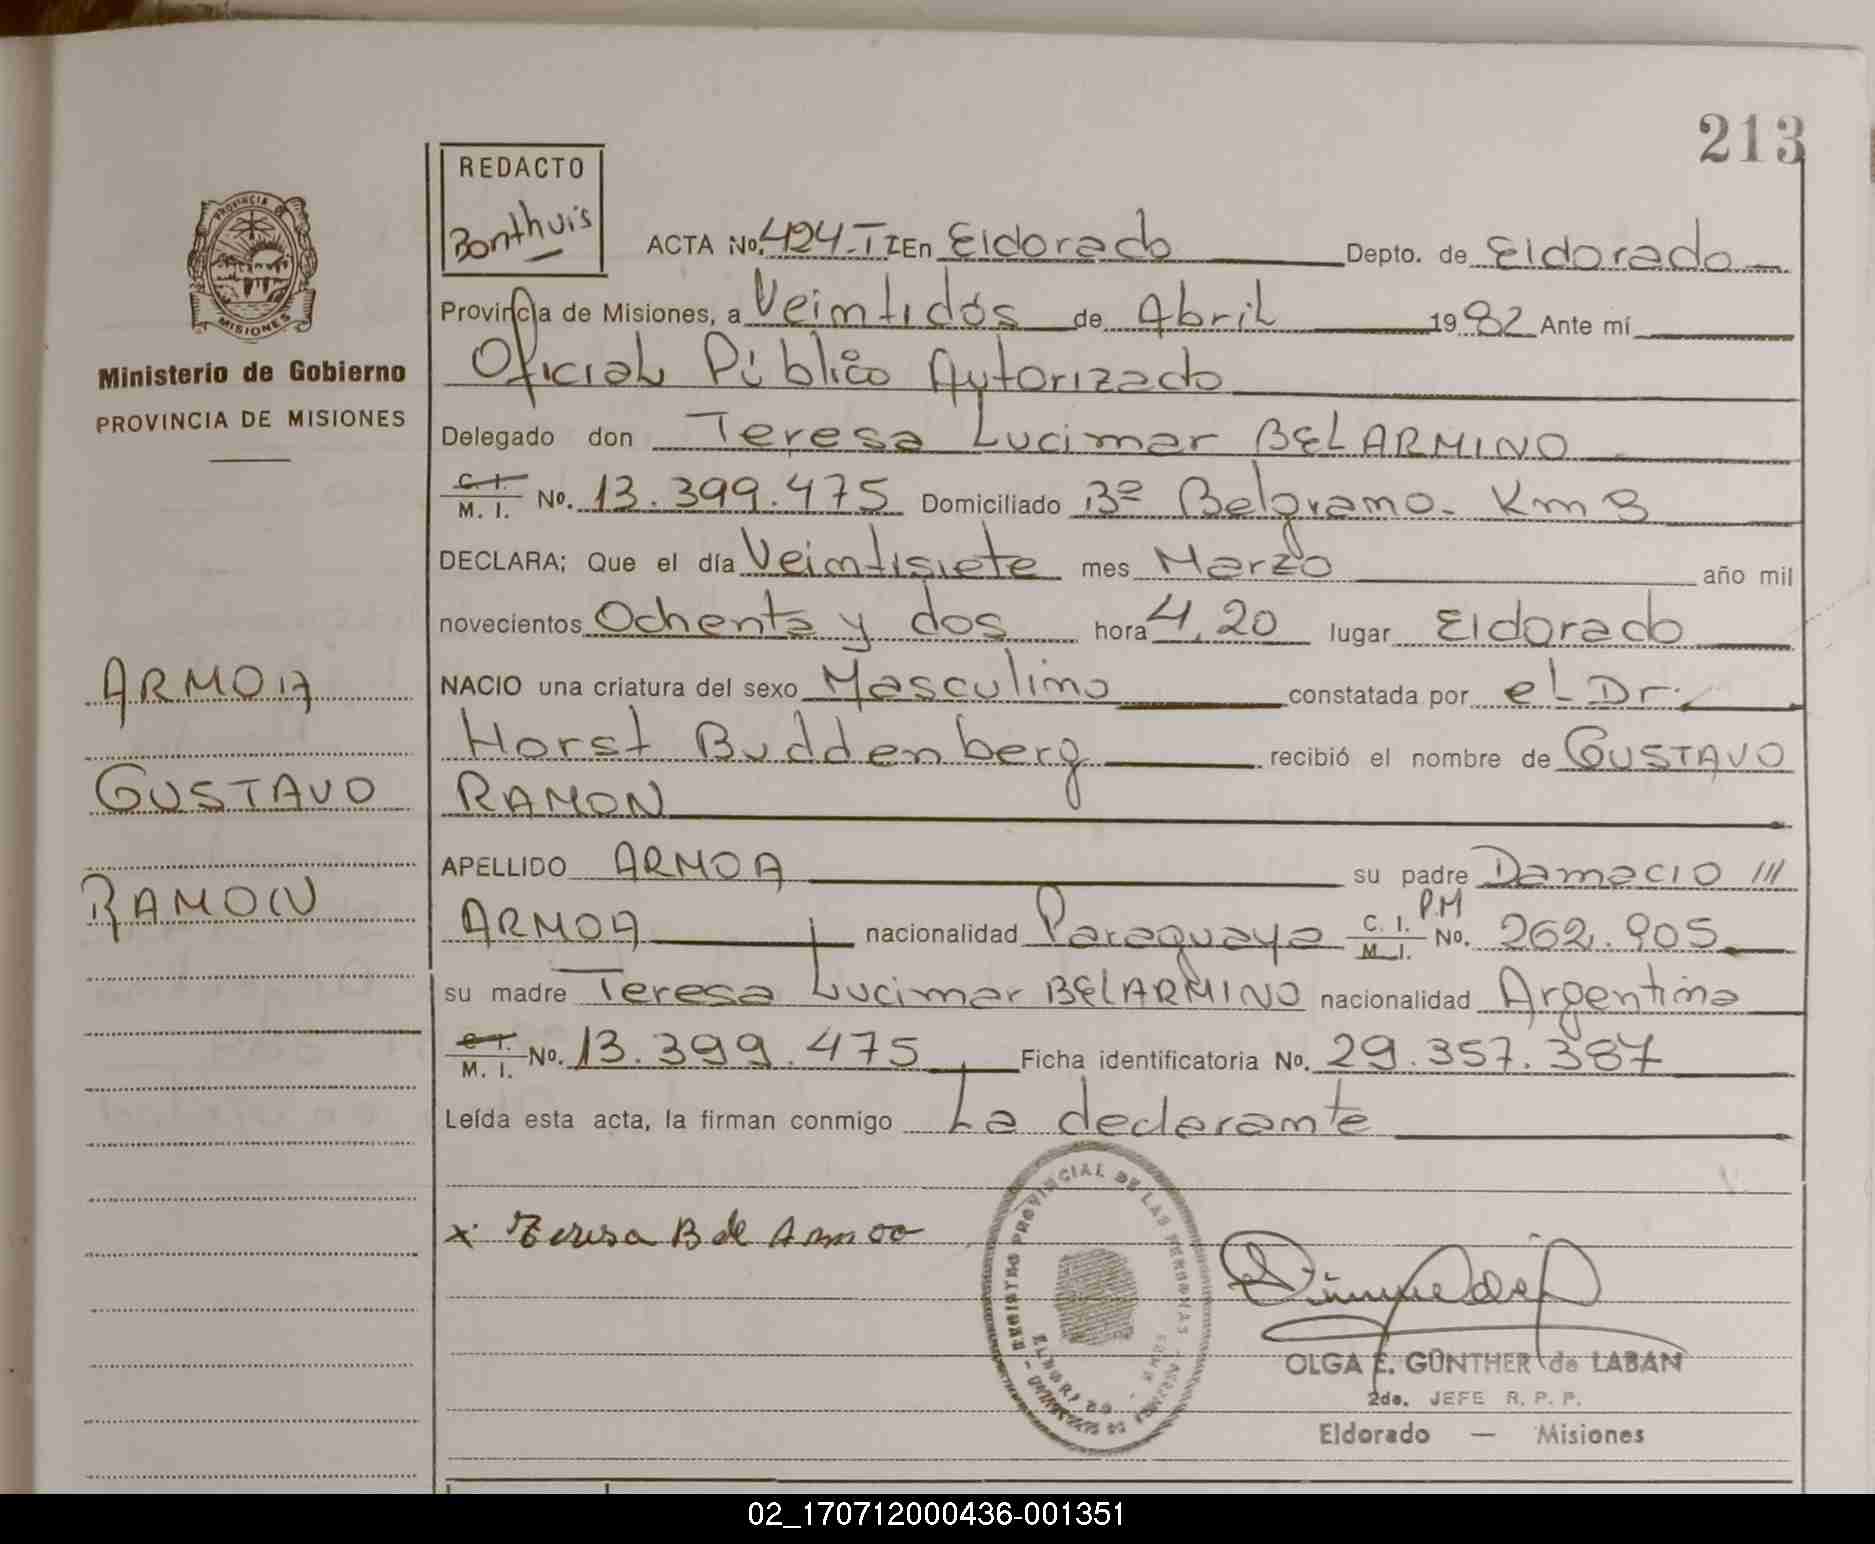 213
REDACTO
Bonthuis
PROVINCIA
MISIONES
Ministerio de Gobierno
PROVINCIA DE MISIONES
ACTA No. 424-TI En Eldorado Depto. de Eldorado
Provincia de Misiones, a Veintidós de Abril 1982 Ante mí
Oficial Público Autorizado
Delegado don Teresa Lucimar BELARMINO
C. I. M. I. No. 13.399.475 Domiciliado Bº Belgrano - Km 8
DECLARA; Que el día Veintisiete mes Marzo año mil
novecientos Ochenta y dos hora 4,20 lugar Eldorado
ARMOA
NACIO una criatura del sexo Masculino constatada por el Dr.
Horst Buddenberg recibió el nombre de GUSTAVO
GUSTAVO
RAMON
APELLIDO ARMOA su padre Damacio
RAMON
ARMOA nacionalidad Paraguaya C. I. M. I. P.M No. 262.905
su madre Teresa Lucimar BELARMINO nacionalidad Argentina
C. I. M. I. No. 13.399.475 Ficha identificatoria No. 29.357.387
Leída esta acta, la firman conmigo La declarante
x Teresa B de Armoa
REGISTRO PROVINCIAL DE LAS PERSONAS
ELDORADO
OLGA E. GÜNTHER de LABAN
2da. JEFE R. P. P.
Eldorado — Misiones
02_170712000436-001351